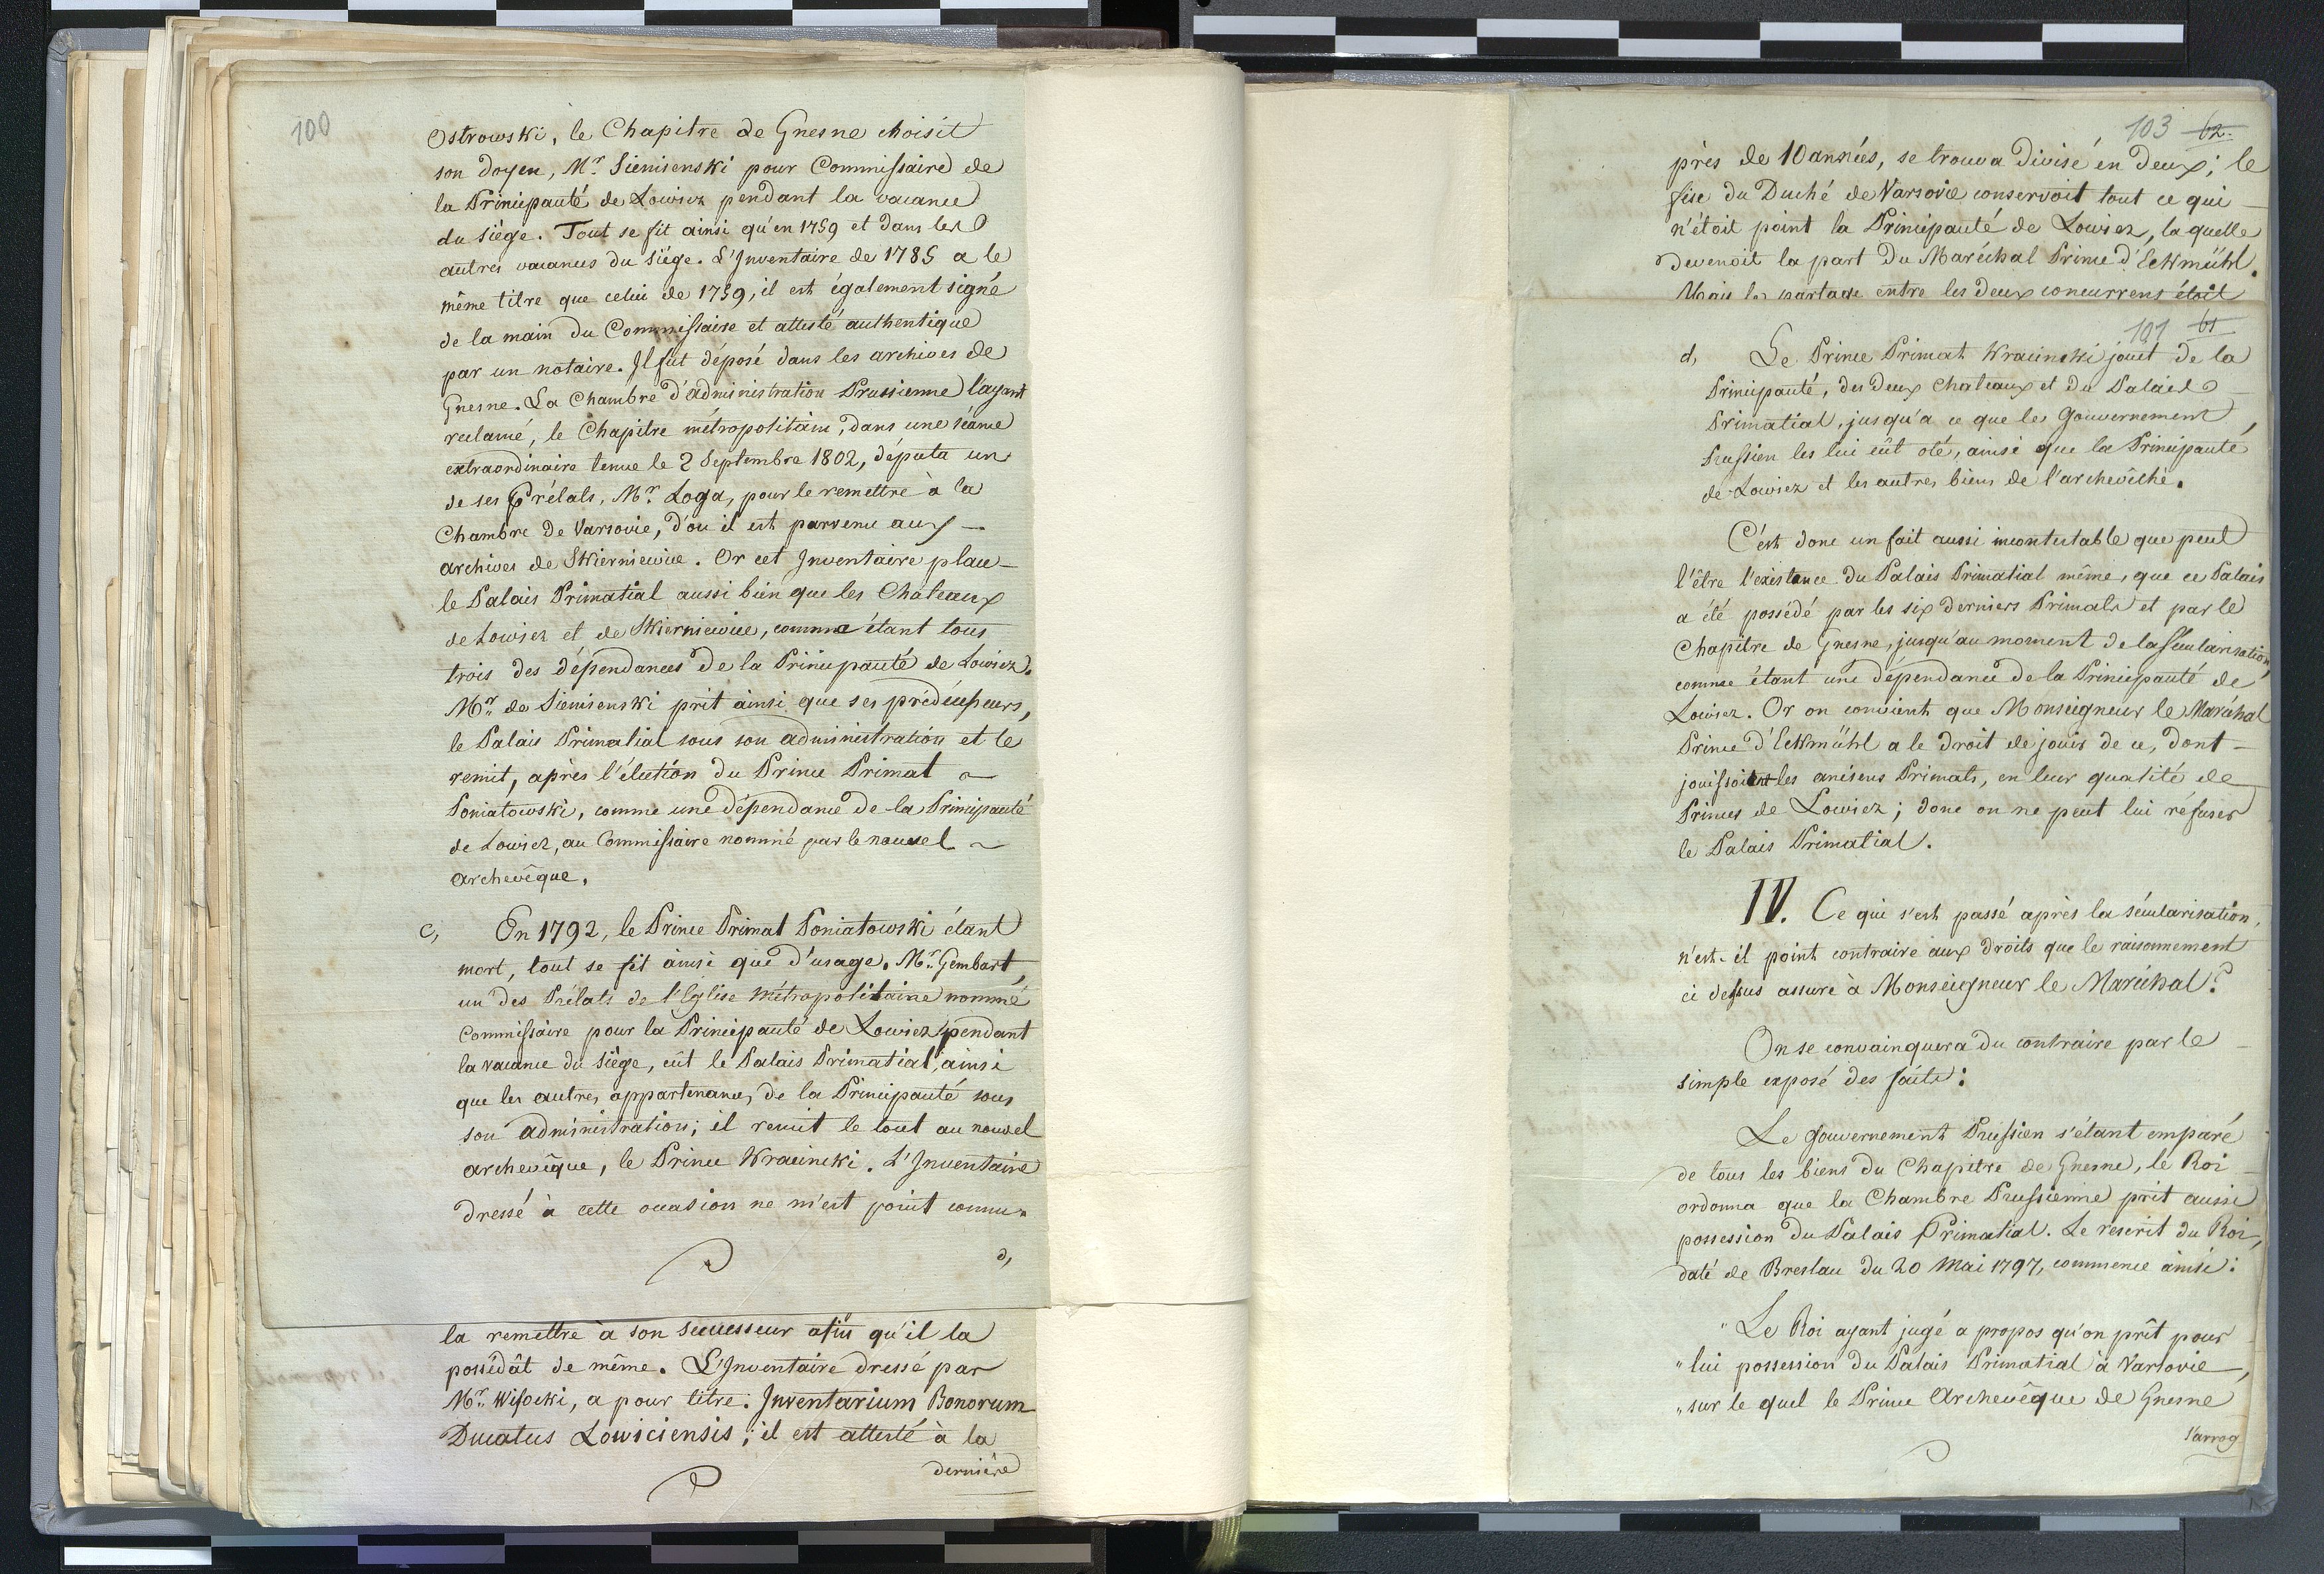 100
Ostrowski, le Chapitre de Gnesne choisit
son doyen, Mr. Siemienski pour Commissaire de
la Principauté de Lowicz pendant la vacance
du siège. Tout se fit ainsi qu'en 1759 et dans les
autres vacances du siège. L'Inventaire de 1785 a le
même titre que celui de 1759, il est également signé
de la main du Commissaire et attesté authentique
par un notaire. Il fut déposé dans les archives de
Gnesne. La Chambre d'administration Prussienne l'ayant
reclamé, le Chapitre métropolitain, dans une séance
extraordinaire tenue le 2 Septembre 1802, députa un
de ses Prélats, Mr. Loga, pour le remettre à la
Chambre de Varsovie, d'où il est parvenu aux
archives de Skierniewice. Or cet Inventaire place
le Palais Primatial aussi bien que les Chateaux
de Lowicz et de Skierniewice, comme étant tous
trois des dépendances de la Principauté de Lowicz.
Mr. de Siemienski prit ainsi que ses prédécesseurs,
le Palais Primatial sous son administration et le
remit, après l'élection du Prince Primat
Poniatowski, comme une dépendance de la Principauté
de Lowicz, au Commissaire nommé par le nouvel
archevêque.
c, En 1792, le Prince Primat Poniatowski étant
mort, tout se fit ainsi que d'usage. Mr. Gembart,
un des Prélats de l'Eglise Métropolitaine nommé
Commissaire pour la Principauté de Lowicz pendant
la vacance du siège, eût le Palais Primatial, ainsi
que les autres appartenances de la Principauté sous
son administration; il remit le tout au nouvel
archevêque, le Prince Kracincki. L'Inventaire
dressé à cette occasion ne m'est point connu.
d,
la remettre à son successeur afin qu'il la
possédât de même. L'Inventaire dressé par
Mr. Wisocki, a pour titre: Inventarium Bonorum
Ducatus Lowiciensis; il est attesté à la
dernière
103 62.
près de 10 années, se trouva divisé en deux; le
fisc du Duché de Varsovie conservoit tout ce qui
n'étoit point la Principauté de Lowicz, la quelle
devenoit la part du Maréchal Prince d'Eckmühl.
Mais le partage entre les deux concurrens étoit
101 61
d, Le Prince Primat Kracinski jouit de la
Principauté, des deux chateaux et du Palais
Primatial, jusqu'à ce que le Gouvernement
Prussien les lui eût oté, ainsi que la Principauté
de Lowicz et les autres biens de l'archevêché.
C'est donc un fait aussi incontestable que peut
l'être l'existence du Palais Primatial même, que ce Palais
a été possédé par les six derniers Primats et par le
Chapitre de Gnesne, jusqu'au moment de la sécularisation,
comme étant une dépendance de la Principauté de
Lowicz. Or on convient que Monseigneur le Maréchal
Prince d'Eckmühl a le droit de jouir de ce, dont
jouissoient les anciens Primats, en leur qualité de
Princes de Lowicz; donc on ne peut lui réfuser
le Palais Primatial.
IV. Ce qui s'est passé après la sécularisation,
n'est-il point contraire aux droits que le raisonnement
ci dessus assure à Monseigneur le Maréchal?
On se convainquera du contraire par le
simple exposé des faits:
Le gouvernement Prussien s'étant emparé
de tous les biens du Chapitre de Gnesne, le Roi
ordonna que la Chambre Prussienne prit aussi
possession du Palais Primatial. Le rescrit du Roi,
daté de Breslau du 20 Mai 1797, commence ainsi:
" Le Roi ayant jugé a propos qu'on prît pour
" lui possession du Palais Primatial à Varsovie,
" sur le quel le Prince Archevêque de Gnesne
s'arrog